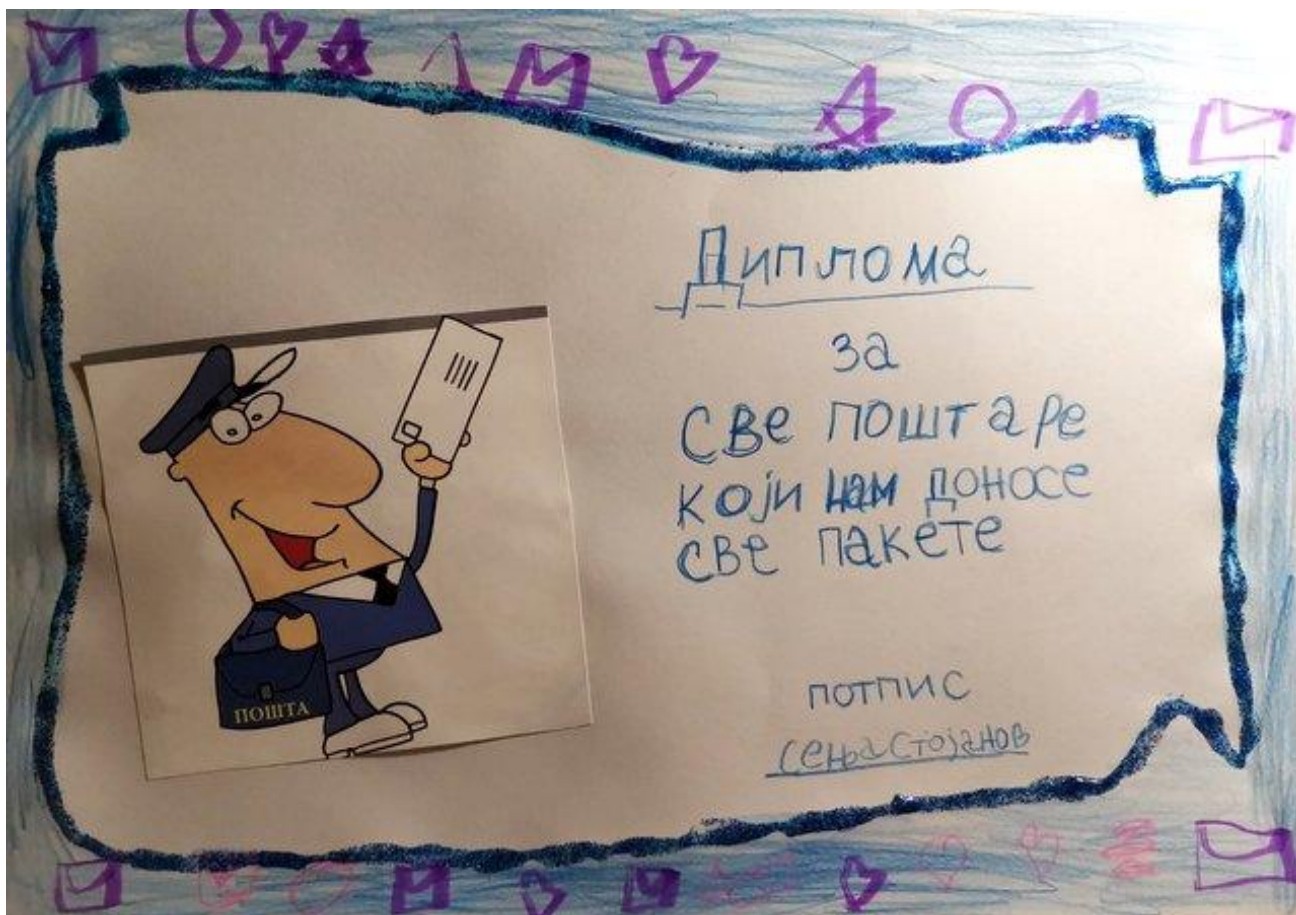 Диплома
за
све поштаре
који нам доносе
све пакете
потпис
сења Стојанов
ПОШТА